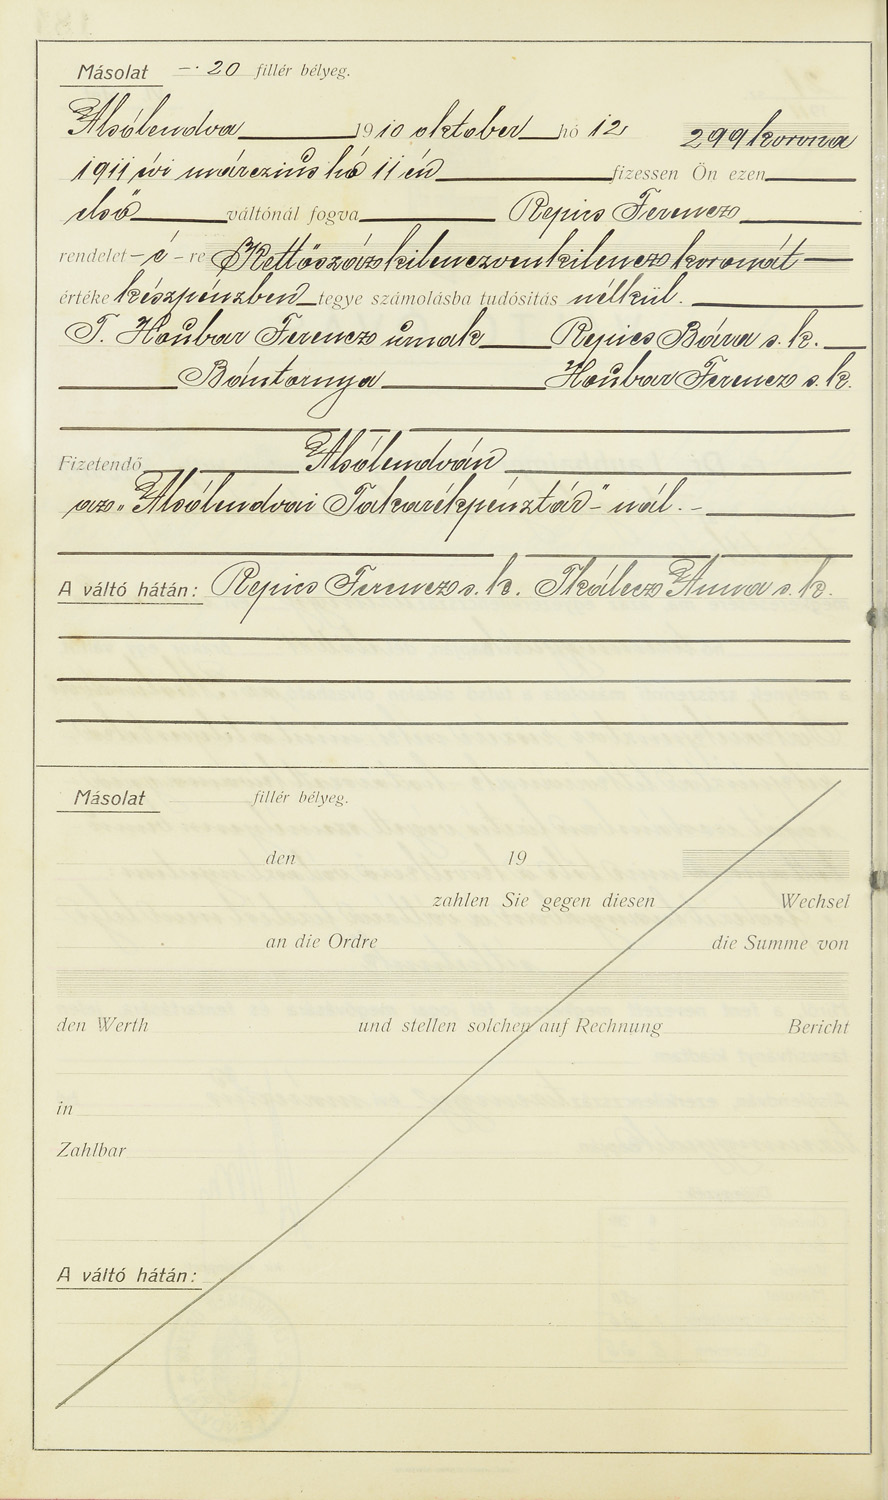 Másolat —·20 fillér bélyeg.
Alsólendva 1910 oktober hó 12 299 korona
1911 évi márczius hó 11 én fizessen Ön ezen
első váltónál fogva Repics Ferencz
rendelet-é-re Kettőszázkilenczvenkilencz koronát
értéke készpénzben tegye számolásba tudósitás nélkül.
T. Houbar Ferencz úrnak Repics Bára s. k.
Bántornya Houbar Ferencz s. k.
Fizetendő Alsólendván
az „Alsólendvai Takarékpénztár"-nál.-
A váltó hátán: Repics Ferencz s. k. Skálecz Anna s. k.
Másolat fillér bélyeg.
den 19
zahlen Sie gegen diesen Wechsel
an die Ordre die Summe von
den Werth und stellen solchen auf Rechnung Bericht
in
Zahlbar
A váltó hátán: